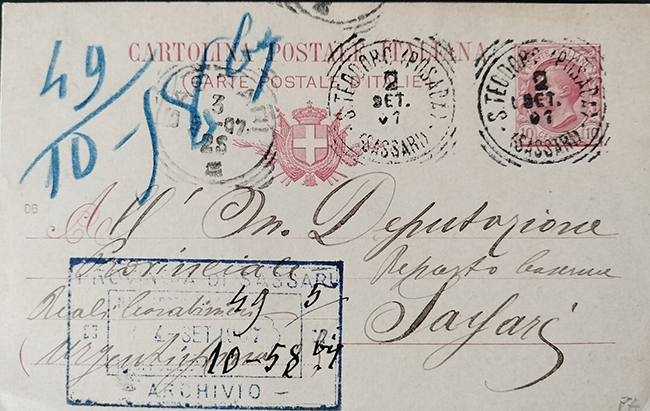 49
10-58
CARTOLINA POSTALE ITALIANA
(CARTE POSTALE D'ITALIE)
S. TEODORO (POSADA)
2
SET.
07
(SASSARI)
S. TEODORO (POSADA)
2
SET.
07
(SASSARI)
SASSARI
3
07
06
All' On. Deputazione
Provinciale
Reparto Caserme
Reali Carabinieri
Sassari
(Urgentissima)
PROVINCIA DI SASSARI
49 5
4 SET
10-58 bis
ARCHIVIO